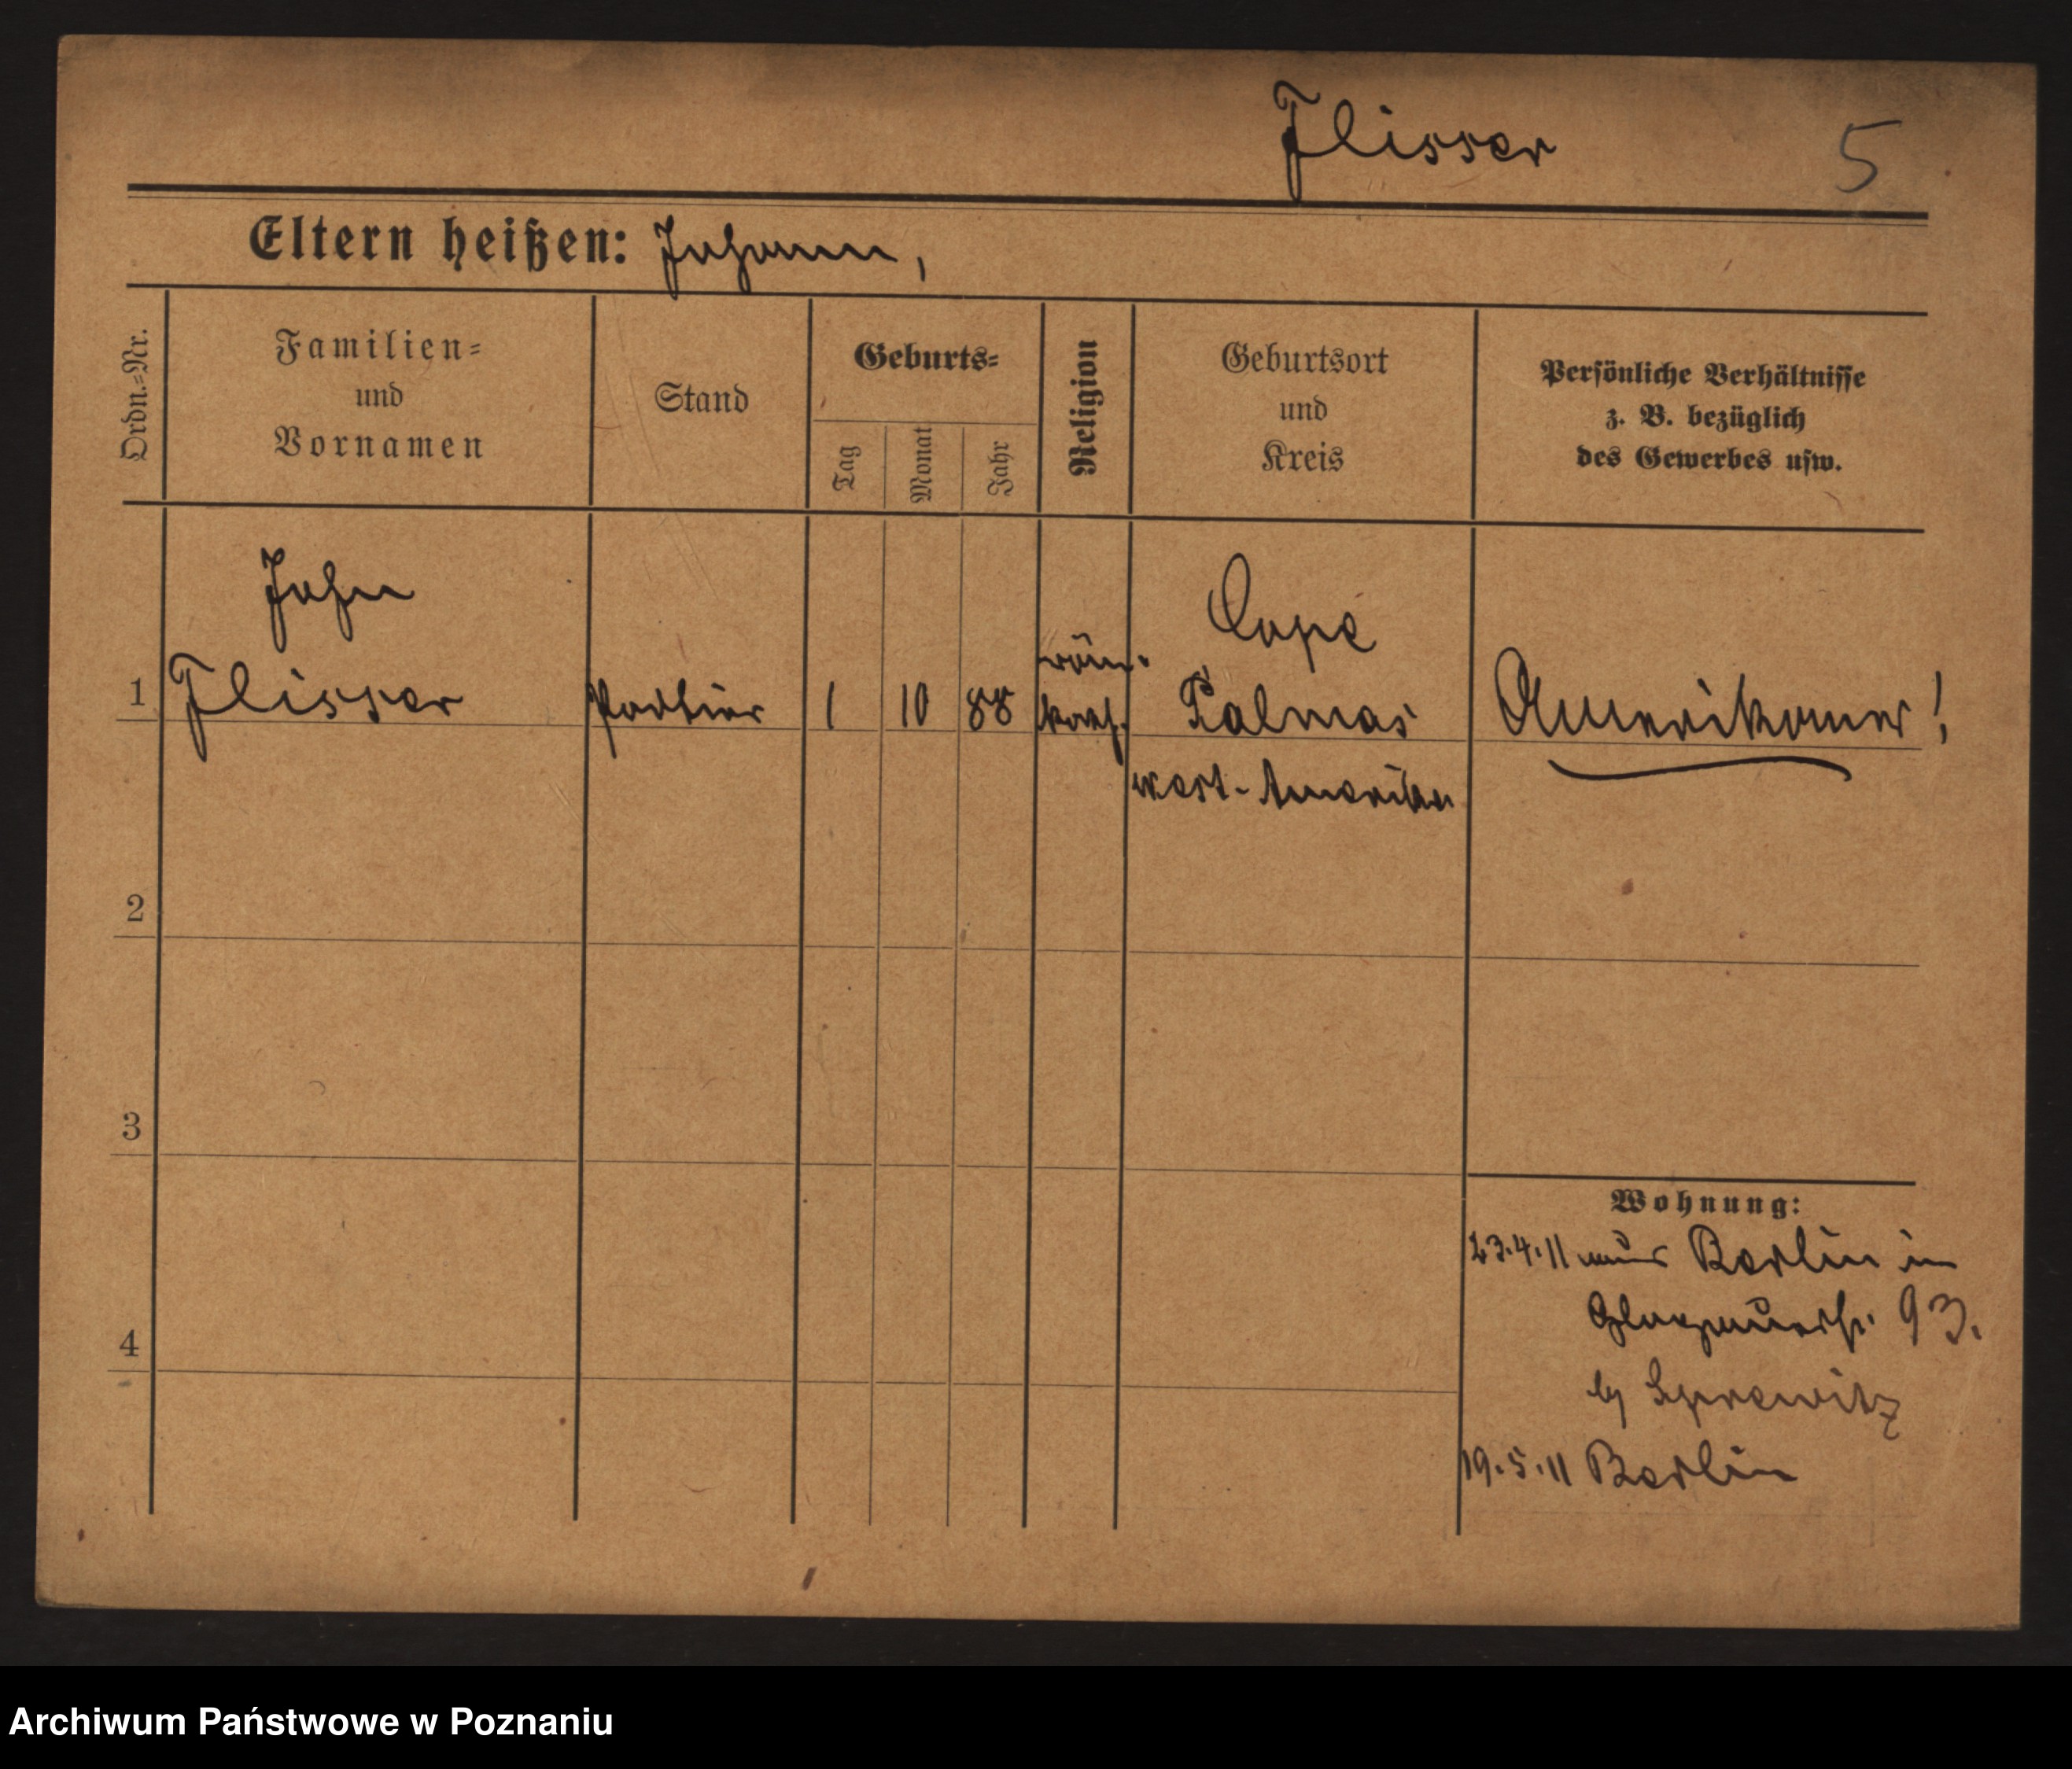 Flisser 5
Eltern heißen: Johann,
Ordn.=Nr.
Familien=
und
Vornamen
Stand
Geburts=
Tag
Monat
Jahr
Religion
Geburtsort
und
Kreis
Persönliche Verhältnisse
z. B. bezüglich
des Gewerbes usw.
John Cape
röm.
1 Flisser Portier 1 10 88 kath. Palmas Amerikaner!
west-Amerika
2
3
Wohnung:
23.4.11 aus Berlin in
Glogauerstr. 93.
4
b/ Sprewitz
19.5.11 Berlin
Archiwum Państwowe w Poznaniu